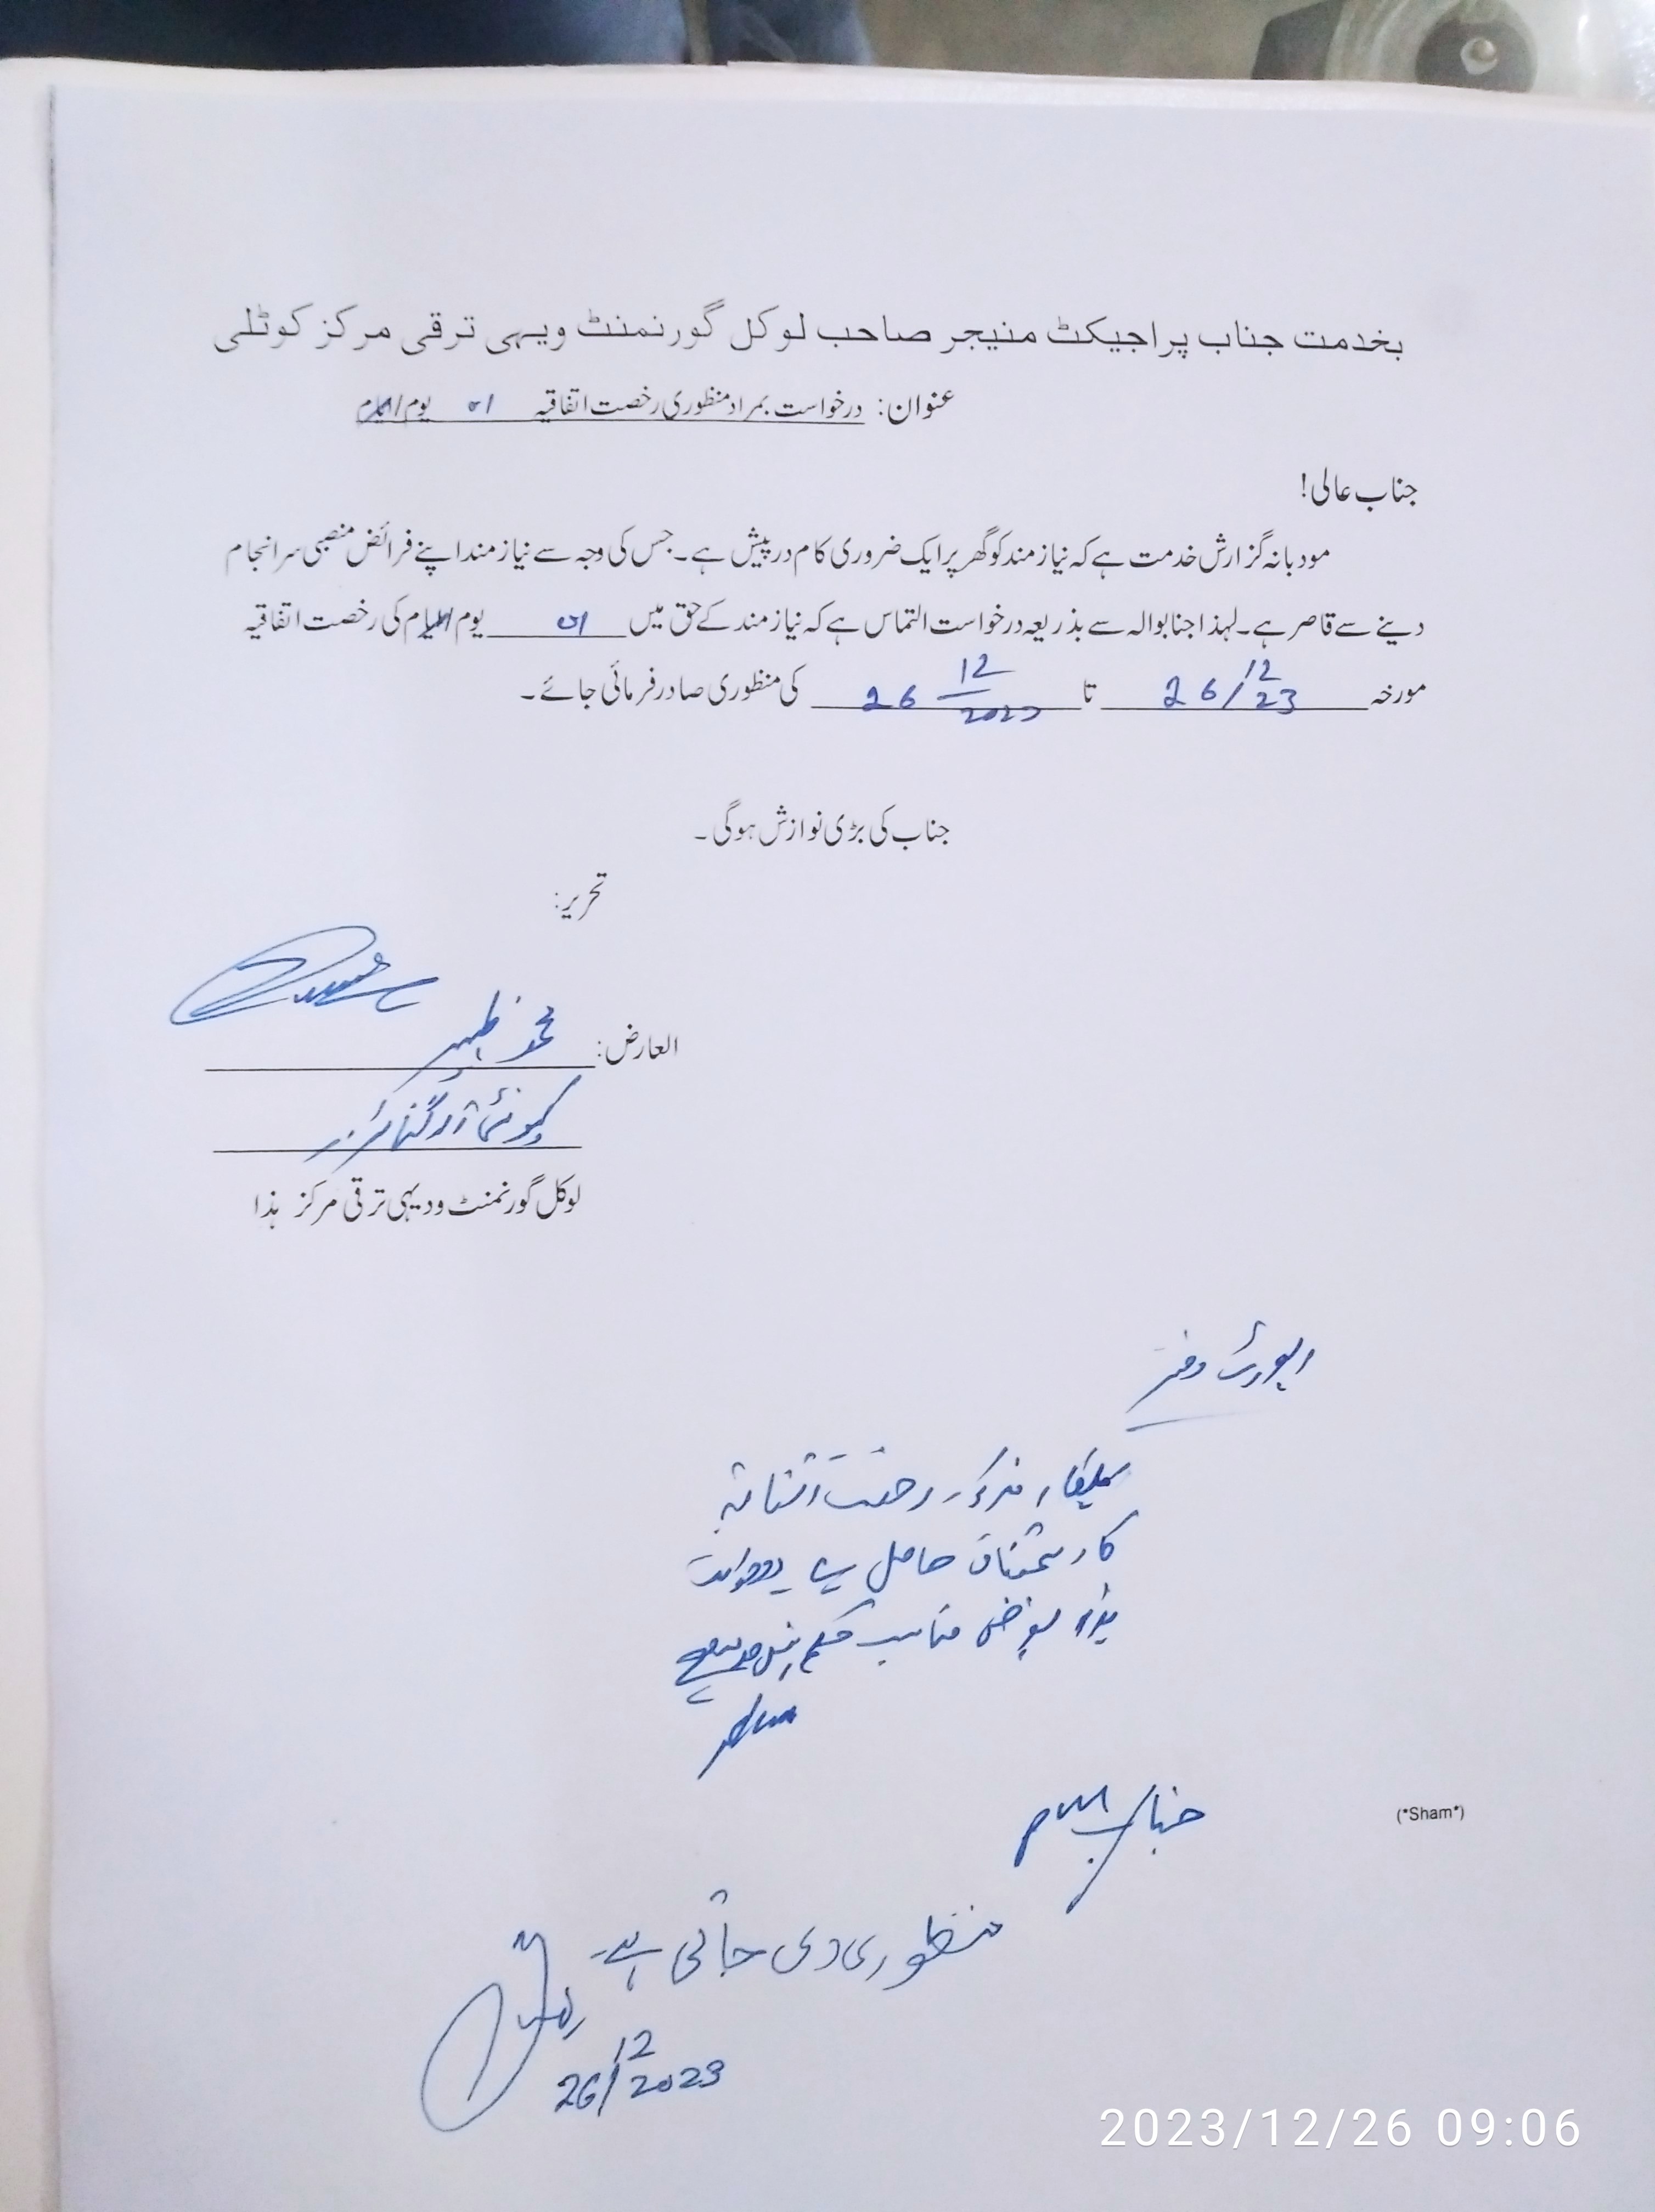 بخدمت جناب پراجیکٹ منیجر صاحب لوکل گورنمنٹ ویہی ترقی مرکز کوٹلی
عنوان: درخواست بمراد منظوری رخصت اتفاقیہ 01 یوم/ایام
جناب عالی!
مودبانہ گزارش خدمت ہے کہ نیاز مند کو گھر پر ایک ضروری کام درپیش ہے۔ جس کی وجہ سے نیاز مند اپنے فرائض منصبی سرانجام
دینے سے قاصر ہے۔ لہذا جنابوالہ سے بذریعہ درخواست التماس ہے کہ نیاز مند کے حق میں 01 یوم/ایام کی رخصت اتفاقیہ
مورخہ 26/12/23 تا 26 12/2023 کی منظوری صادر فرمائی جائے۔
جناب کی بڑی نوازش ہوگی۔
تحریر:
العارض: محمد ظہیر
کمیونٹی آرگنائزر
لوکل گورنمنٹ ودیہی ترقی مرکز ہذا
رپورٹ دفتر
مذکور رخصت اتفاقیہ
کا استحقاق حاصل ہے درخواست
ہذا بغرض مناسب حکم پیش
جناب PM
(*Sham*)
منظوری دی جاتی ہے
26/12/2023
2023/12/26 09:06